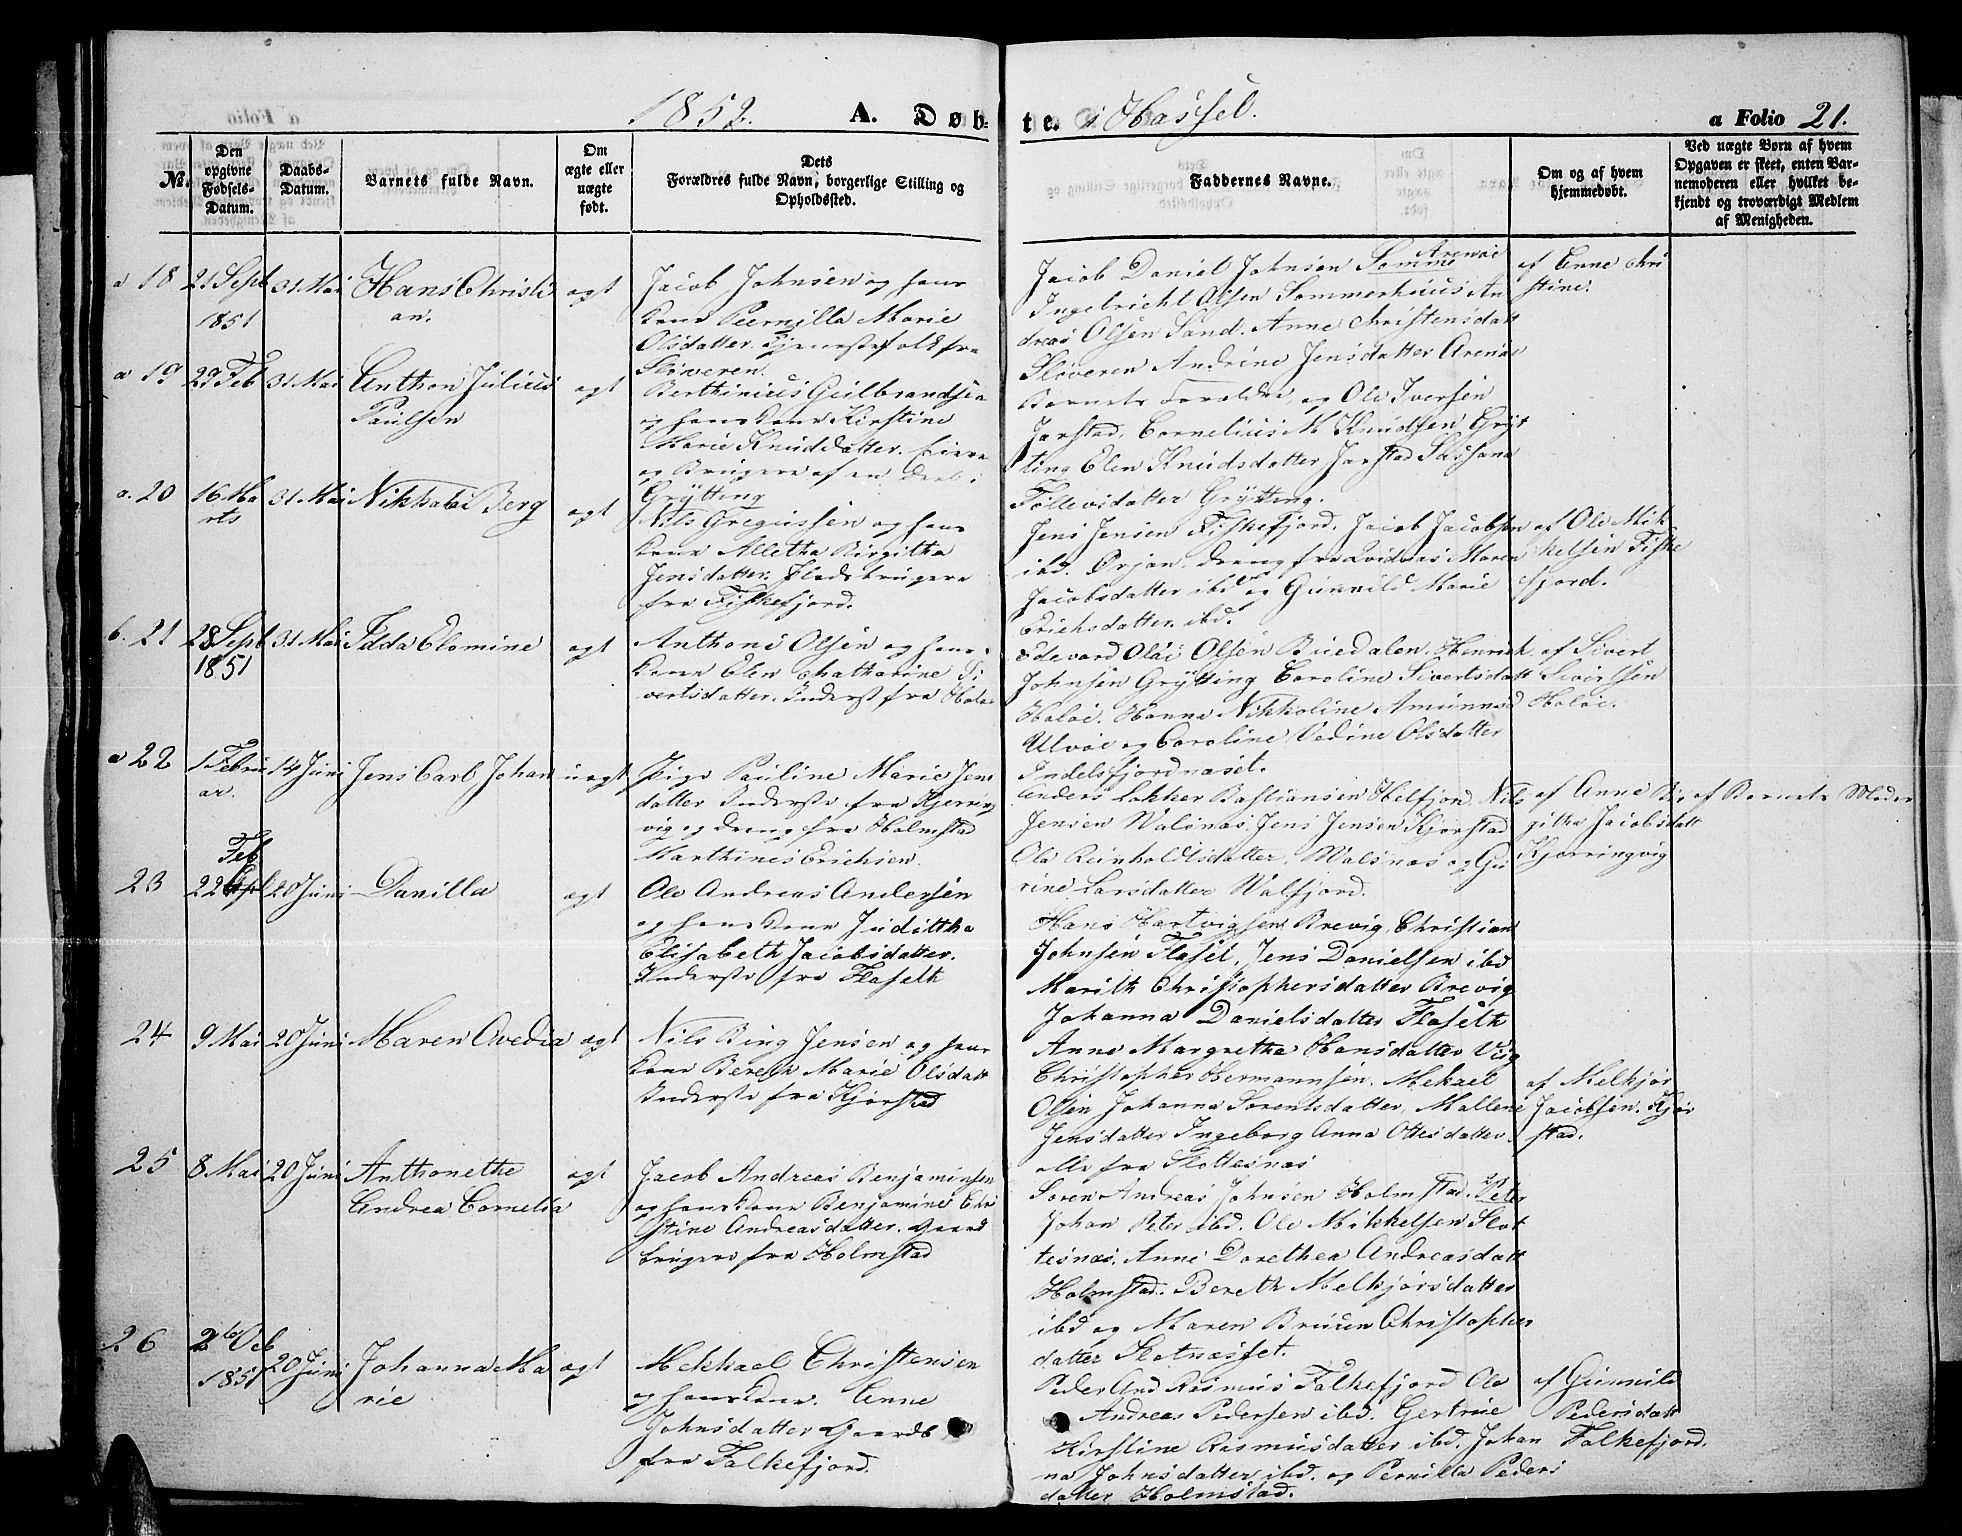 1852. A. Døbte. i Hassel. a Folio 21.
No.
Den opgivne Fødsels-Datum.
Daabs-Datum.
Barnets fulde Navn.
Om ægte eller uægte født.
Dets Forældres fulde Navn, borgerlige Stilling og Opholdssted.
Faddernes Navne.
Om og af hvem hjemmedøbt.
Ved uægte Børn af hvem Opgaven er skeet, enten Barnemoderen eller hvilket bekjendt og troværdigt Medlem af Menigheden.
a 18 21 Sept 1851 31 Mai Hans Christi
an.
ægt
Jacob Johnsen og hans
Kone Peernilla Marie
Olsdatter. Tjenestefolk fra
Sløveren.
Jacob Daniel Johnsen Arenøe
Ingebricht Olsen Sommerhuus An
dreas Olsen Sand. Anne Christensdatt
Sløveren Andrine Jensdatter Arenøe
af Anne Chri
stine.
a 19 29 Feb 31 Mai Anthon Julius
Paulsen
ægt
Berthinius Gulbrandsen
og hans Kone Kirstine
Marie Knuddatter. Eiere
og Brugere af en Deel i
Grytting
Barnets Forældre og Ole Iversen
Jørstad. Cornelius M Knudsen Gryt
ting Elen Knudsdatter Jørstad Susana
Tollevsdatter Grytting.
a. 20 16 Ma
rts 31 Mai Nikkolai Berg ægt
Nils Gregussen og hans
Kone Alletha Birgitha
Jensdatter. Pladsbrugere
fra Fiskefjord.
Jens Jensen Fiskefjord. Jacob Jacobsen
ibd. Ørjan. dreng fra Qvidnæs Maren
Jacobsdatter ibd og Gunnild Marie
Erichsdatter. ibd.
af Ole Mik
kelsen Fiske
fjord.
b. 21 28 Sept 1851 31 Mai Idda Elomine ægt
Anthoni Olsen og hans
Kone Elen Chatharine Si
vertsdatter. Inderst fra Haløe
Edevard Olai Olsen Buedalen. Henrich
Johnsen Grytting Caroline Sivertsdatt
Haløe. Hanna Nikkoline Amundsd
Ulvøe og Caroline Vedine Olsdatter
Indelsfjordnæset.
af Sivert
Sivertsen
Haløe.
a 22 1 Febru
ar. 14 Juni Jens Carl Johan uægt
Pige Pauline Marie Jens
datter Inderste fra Kjerring
vig og dreng fra Holmstad
Marthines Erichsen.
Anders Lokker Bastiansen Helfjord, Nils
Jensen Walsnæs, Jens Jensen Kjørstad
Ola Reinholdtsdatter, Walsnæs og Gu
rine Larsdatter Walfjord.
af Anne Bir
githa Jacobsdatt
Kjerringvig
af Barnets Moder
23 22 Feb 20 Juni Danilla ægt
Ole Andreas Andersen
og hans Kone Judittha
Elisabeth Jacobsdatter.
Inderste fra Flaselt
Hans Hartvigsen Brevig, Christian
Johnsen Flaset, Jens Danielsen ibd
Marith Christophersdatter Brevig
Johanna Danielsdatter Flaselt
24 9 Mai 20 Juni Maren Ovedia ægt
Nils Bing Jensen og hans
Kone Bereth Marie Olsdatt
Inderste fra Kjørstad
Anne Margretha Hansdatter Vig
Christopher Hermannsen. Mekael
Olsen Johanna Sorentsdatter, Mallene
Jensdatter Ingeborg Anna Ottesdatter.
alle fra Slottesnæs
af Melkjør
Jacobsen. Kjør
stad.
25 8 Mai 20 Juni Anthonethe
Andrea Cornelia
ægt
Jacob Andreas Benjaminsen
og hans Kone Benjamine Chri
stine Andreasdatter. Gaard
brugere fra Holmstad
Søren Andreas Johnsen Holmstad. Peter
Johan Peter ibd. Ole Mikkelsen Slot
tesnæs. Anne Dorethea Andreasdatt
Holmstad. Bereth Melkjørsdatter
ibd og Maren Bruun Christopher
datter Slotnæsset.
26 2 Oct 1851 20 Juni Johanna Ma
rie
ægt
Mekkael Christensen
og hans Kone. Anne
Johnsdatter Gaardb
fra Falkefjord.
Peder And Rasmus Falkefjord Ole
Andreas Pedersen ibd. Gertrue
Kirstine Rasmusdatter ibd. Johan
na Johnsdatter ibd. og Pernilla Peders
datter Holmstad.
af Gunnild
Pedersdatt
Falkefjord.